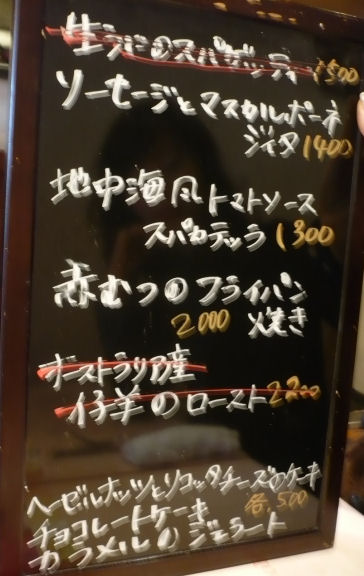 生ラドのスパゲッティ 1500
ソーセージとマスカルポーネ
ジィタ 1400
地中海風トマトソース
スパカテッラ 1300
赤むつのフライパン
2000 焼き
オーストラリア産
仔羊のロースト 2200
ヘーゼルナッツとリコッタチーズのケーキ
チョコレートケーキ 各500
カラメルのジェラート